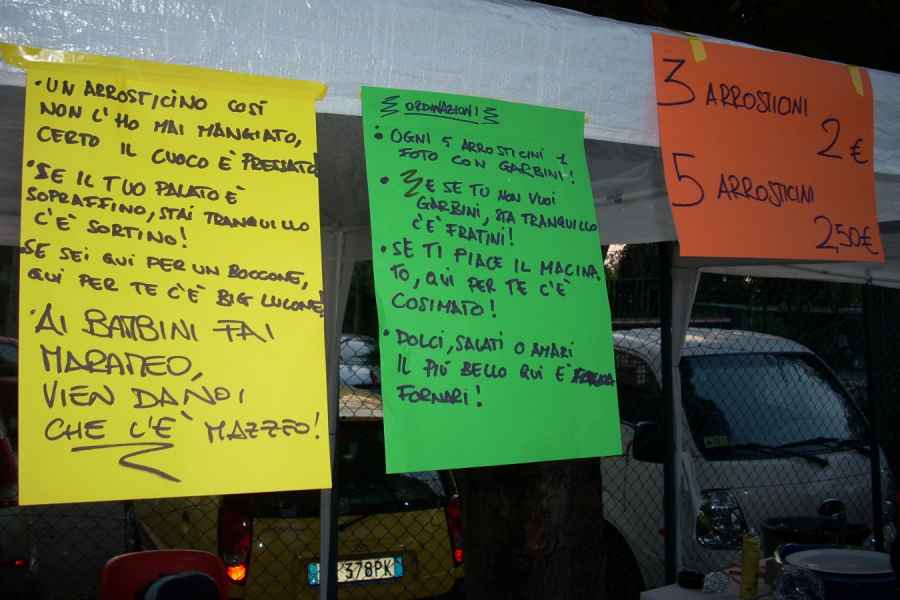 • UN ARROSTICINO COSÌ
NON L'HO MAI MANGIATO,
CERTO IL CUOCO È PRESSATO!
• SE IL TUO PALATO È
SOPRAFFINO, STAI TRANQUILLO
C'È SORTINO!
SE SEI QUI PER UN BOCCONE,
QUI PER TE C'È BIG LUCONE!
• AI BAMBINI FAI
MARAMEO,
VIEN DA NOI
CHE C'È MAZZEO!
ORDINAZIONI
• OGNI 5 ARROSTICINI 1
FOTO CON GARBINI!
• E SE TU NON VUOI
GARBINI, STA TRANQUILLO
C'È FRATINI!
• SE TI PIACE IL MACINA
TO, QUI PER TE C'È
COSIMATO!
• DOLCI, SALATI O AMARI
IL PIÙ BELLO QUI È
FORNARI!
3 ARROSTICINI
2€
5 ARROSTICINI
2,50€
378PK